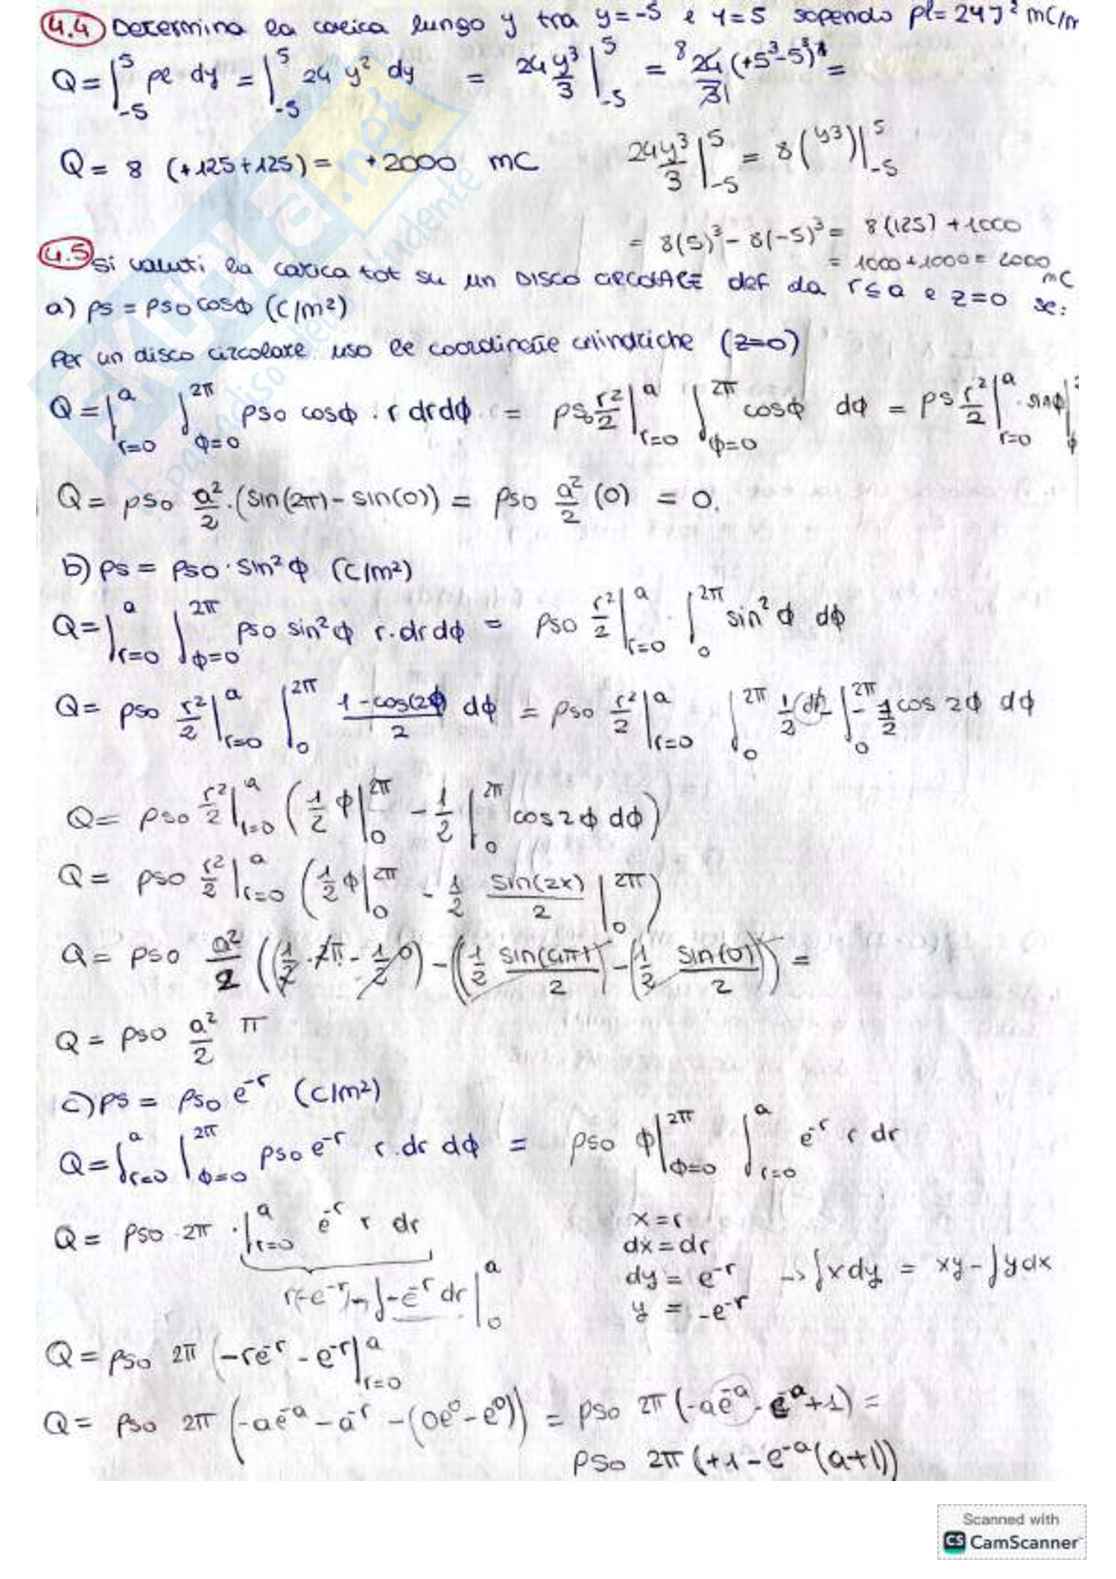 4.4 Determina la carica lungo y tra y=-5 e y=5 sapendo ρl=24y² mC/m
Q = ∫_{-5}^{5} ρl dy = ∫_{-5}^{5} 24 y² dy = 24 y³/3 |_{-5}^{5} = 8 24/31 (+5³-5³)⁴ =
Q = 8 (+125+125) = +2000 mC
24y³/3 |_{-5}^{5} = 8(y3)|_{-5}^{5}
= 8(5)³ - 8(-5)³ = 8(125) + 1000
= 1000+1000 = 2000 mC
4.5 Si valuti la carica tot su un DISCO CIRCOLARE def da r≤a e z=0 se:
a) ρs = ρso cosϕ (C/m²)
Per un disco circolare uso le coordinate cilindriche (z=0)
Q = ∫_{r=0}^{a} ∫_{ϕ=0}^{2π} ρso cosϕ · r dr dϕ = ρso r²/2 |_{r=0}^{a} ∫_{ϕ=0}^{2π} cosϕ dϕ = ρs r²/2 |_{r=0}^{a} · sinϕ |
Q = ρso a²/2 · (sin(2π) - sin(0)) = ρso a²/2 (0) = 0.
b) ρs = ρso · sin²ϕ (C/m²)
Q = ∫_{r=0}^{a} ∫_{ϕ=0}^{2π} ρso sin²ϕ r·dr dϕ = ρso r²/2 |_{r=0}^{a} · ∫_{0}^{2π} sin²ϕ dϕ
Q = ρso r²/2 |_{r=0}^{a} ∫_{0}^{2π} 1-cos(2ϕ)/2 dϕ = ρso r²/2 |_{r=0}^{a} ∫_{0}^{2π} 1/2 dϕ - ∫_{0}^{2π} - 1/2 cos 2ϕ dϕ
Q = ρso r²/2 |_{r=0}^{a} (1/2 ϕ |_{0}^{2π} - 1/2 ∫_{0}^{2π} cos 2ϕ dϕ)
Q = ρso r²/2 |_{r=0}^{a} (1/2 ϕ |_{0}^{2π} - 1/2 sin(2x)/2 |_{0}^{2π})
Q = ρso a²/2 ((1/2 · 2π - 1/2 0) - ((1/2 sin(4π)/2) - (1/2 sin(0)/2)) =
Q = ρso a²/2 π
c) ρs = ρso e^{-r} (C/m²)
Q = ∫_{r=0}^{a} ∫_{ϕ=0}^{2π} ρso e^{-r} r·dr dϕ = ρso ϕ |_{ϕ=0}^{2π} ∫_{r=0}^{a} e^{-r} r dr
Q = ρso · 2π · ∫_{r=0}^{a} e^{-r} r dr
r(-e^{-r}) - ∫ -e^{-r} dr |_{0}^{a}
x = r
dx = dr
dy = e^{-r} → ∫x dy = xy - ∫y dx
y = -e^{-r}
Q = ρso 2π (-re^{-r} - e^{-r} |_{r=0}^{a}
Q = ρso 2π (-ae^{-a} - a^{-r} - (0e⁰ - e⁰)) = ρso 2π (-ae^{-a} - e^{-a} + 1) =
ρso 2π (+1 - e^{-a}(a+1))
Scanned with
CS CamScanner